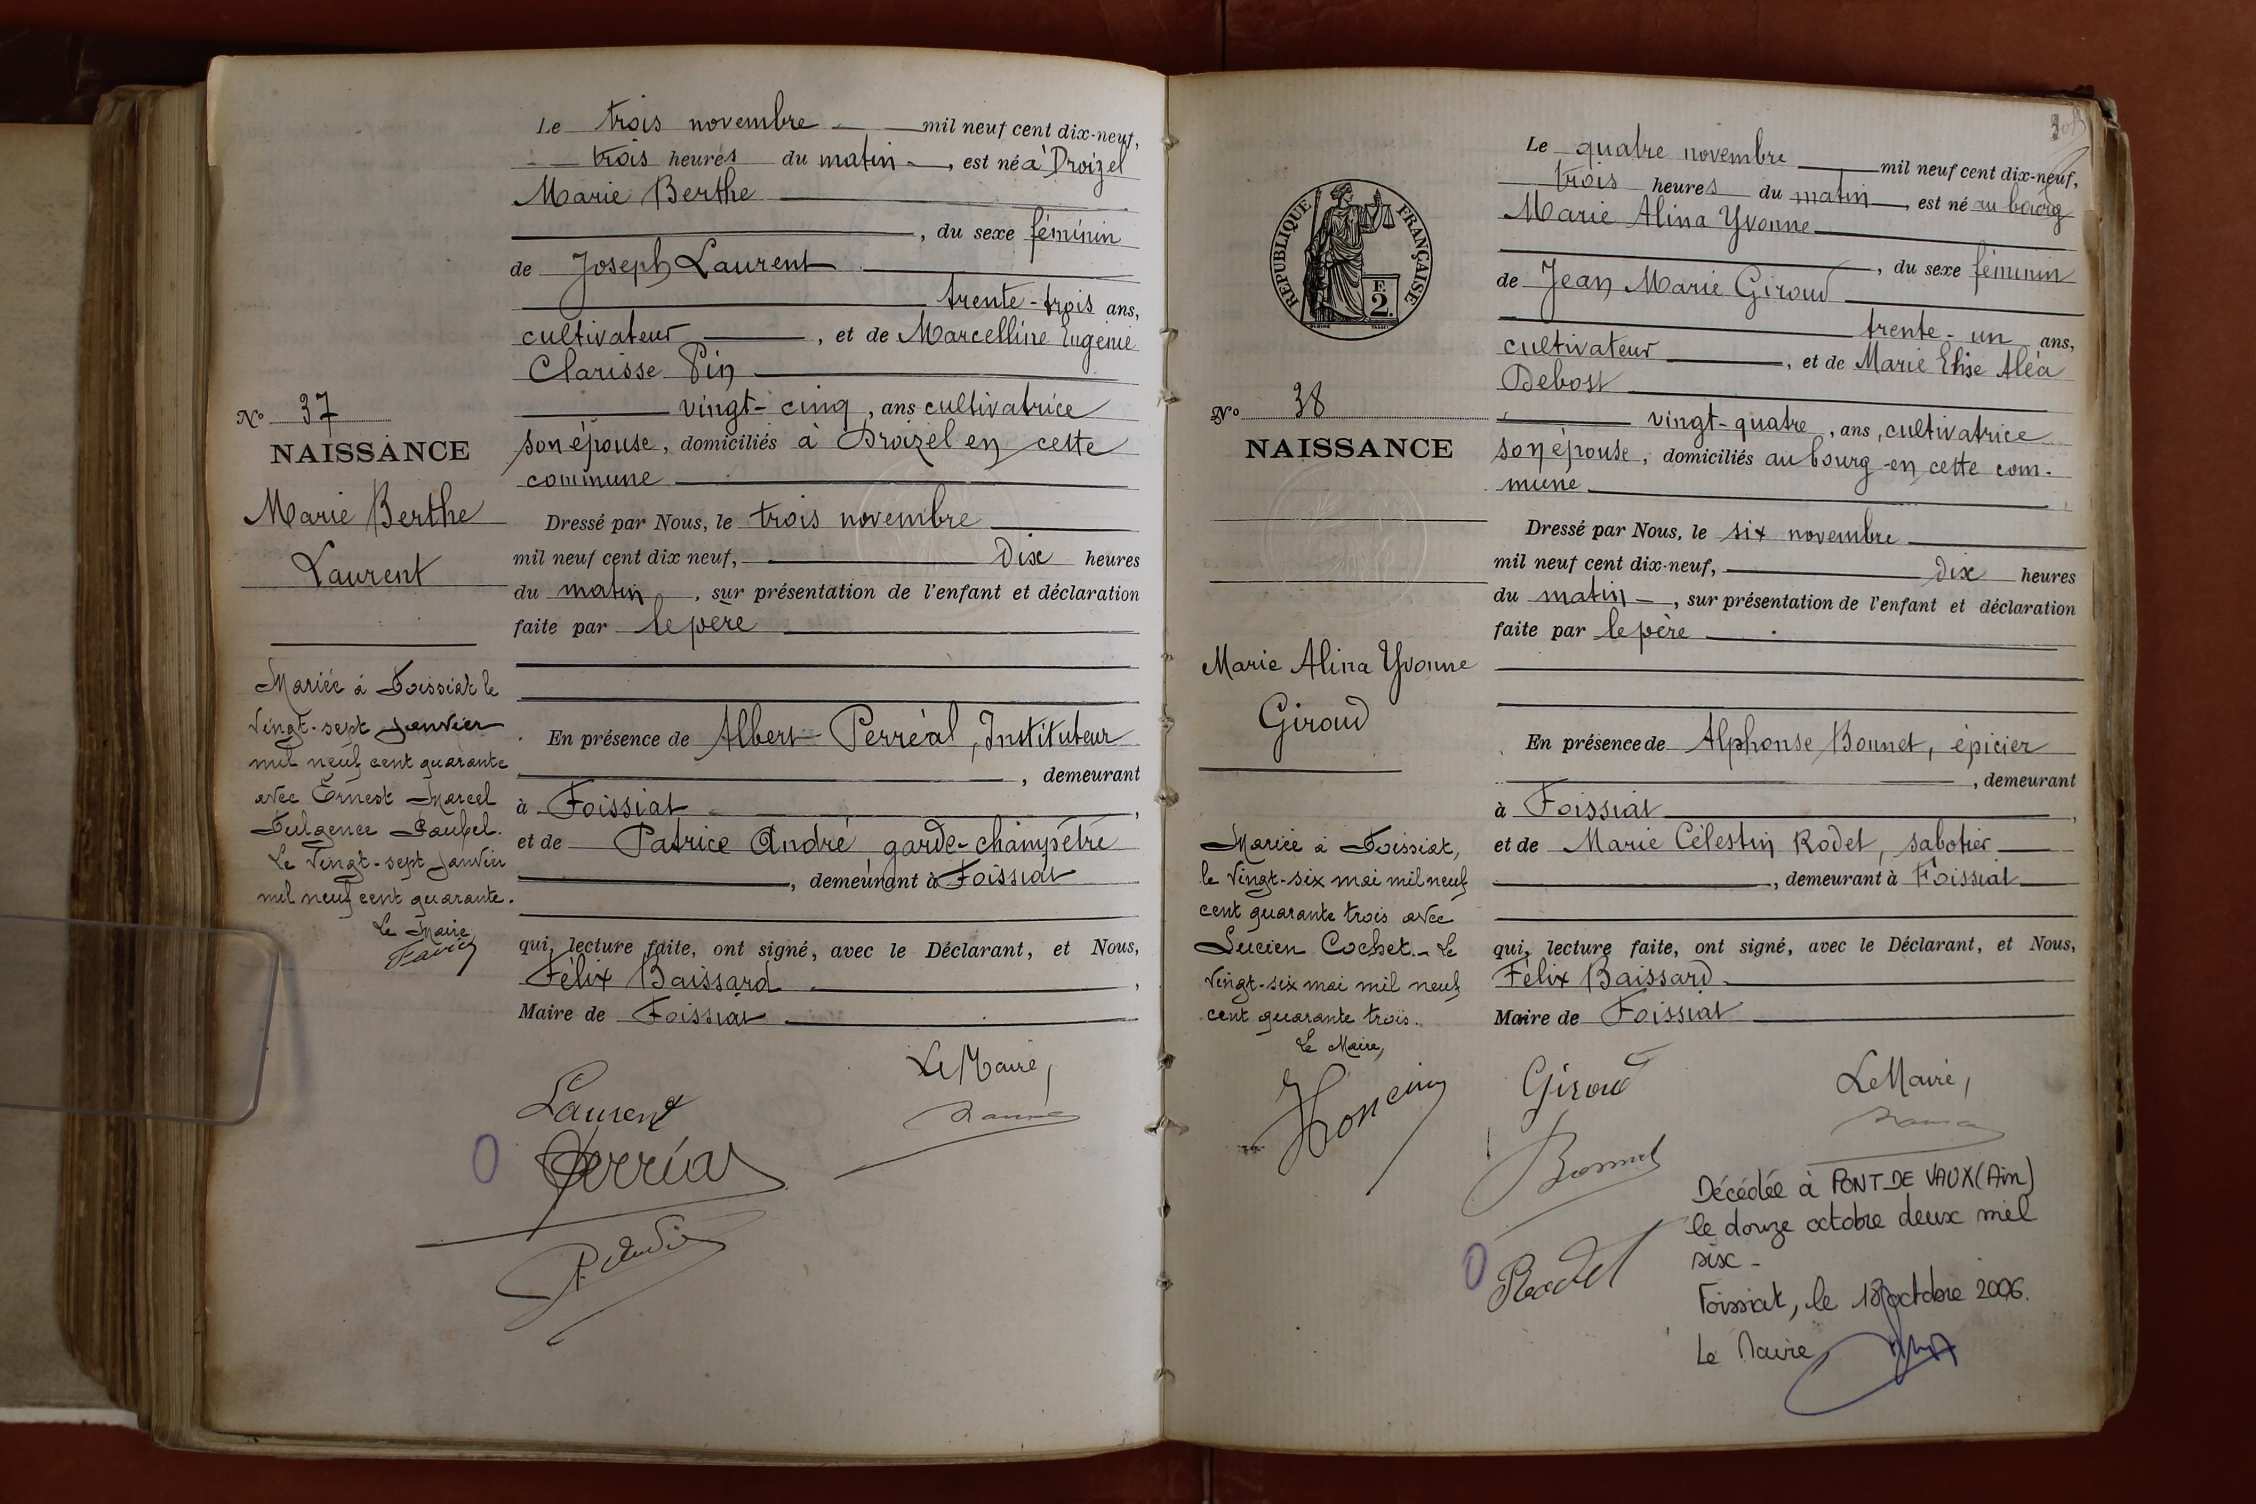 Le trois novembre mil neuf cent dix-neuf,
trois heures du matin, est né à Droizel
Marie Berthe
, du sexe féminin
de Joseph Laurent
trente-trois ans,
cultivateur, et de Marcelline Eugénie
Clarisse Pin
vingt-cinq, ans cultivatrice
son épouse, domiciliés à Droizel en cette
commune
Dressé par Nous, le trois novembre
mil neuf cent dix neuf, dix heures
du matin, sur présentation de l'enfant et déclaration
faite par le père
En présence de Albert Perréal, Instituteur
, demeurant
à Foissiat,
et de Patrice André garde-champêtre
, demeurant à Foissiat
qui, lecture faite, ont signé, avec le Déclarant, et Nous,
Félix Baissard,
Maire de Foissiat
Le Maire,
Laurent
N° 37
NAISSANCE
Marie Berthe
Laurent
Mariée à Foissiat le
vingt-sept janvier
mil neuf cent quarante
avec Ernest Marcel
Fulgence
Le vingt-sept janvier
mil neuf cent quarante.
Le Maire
Le quatre novembre mil neuf cent dix-neuf,
trois heures du matin, est né au bourg
Marie Alina Yvonne
, du sexe féminin
de Jean Marie Giroud
trente-un ans,
cultivateur, et de Marie Elise Aléa
Debost
vingt-quatre, ans, cultivatrice
son épouse, domiciliés au bourg en cette com-
mune
Dressé par Nous, le six novembre
mil neuf cent dix-neuf, dix heures
du matin, sur présentation de l'enfant et déclaration
faite par le père
En présence de Alphonse Bonnet, épicier
, demeurant
à Foissiat,
et de Marie Célestin Rodet, sabotier
, demeurant à Foissiat
qui, lecture faite, ont signé, avec le Déclarant, et Nous,
Félix Baissard
Maire de Foissiat
Giroud
Le Maire,
Bonnet
Rodet
Décédée à PONT DE VAUX (Ain)
le douze octobre deux mil
six -
Foissiat, le octobre 2006.
Le Maire
RÉPUBLIQUE FRANÇAISE
E
2.
N° 38
NAISSANCE
Marie Alina Yvonne
Giroud
Mariée à Foissiat,
le vingt-six mai mil neuf
cent quarante trois avec
Lucien Cochet.- Le
vingt-six mai mil neuf
cent quarante trois.
Le Maire,